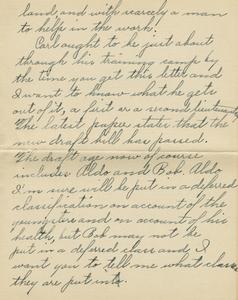 land and with scarcely a man
to help in the work.
Carl ought to be just about
through his training camp by
the time you get this letter and
I want to know what he gets
out of it, a first or a second lieutenantcy.
The latest paper states that the
new draft bill has passed.
The draft age now of course
includes Aldo and Bob. Aldo
I'm sure will be put in a deferred
classification on account of the
youngsters and on account of his
health, but Bob may not be
put in a deferred class and I
want you to tell me what class
they are put into.